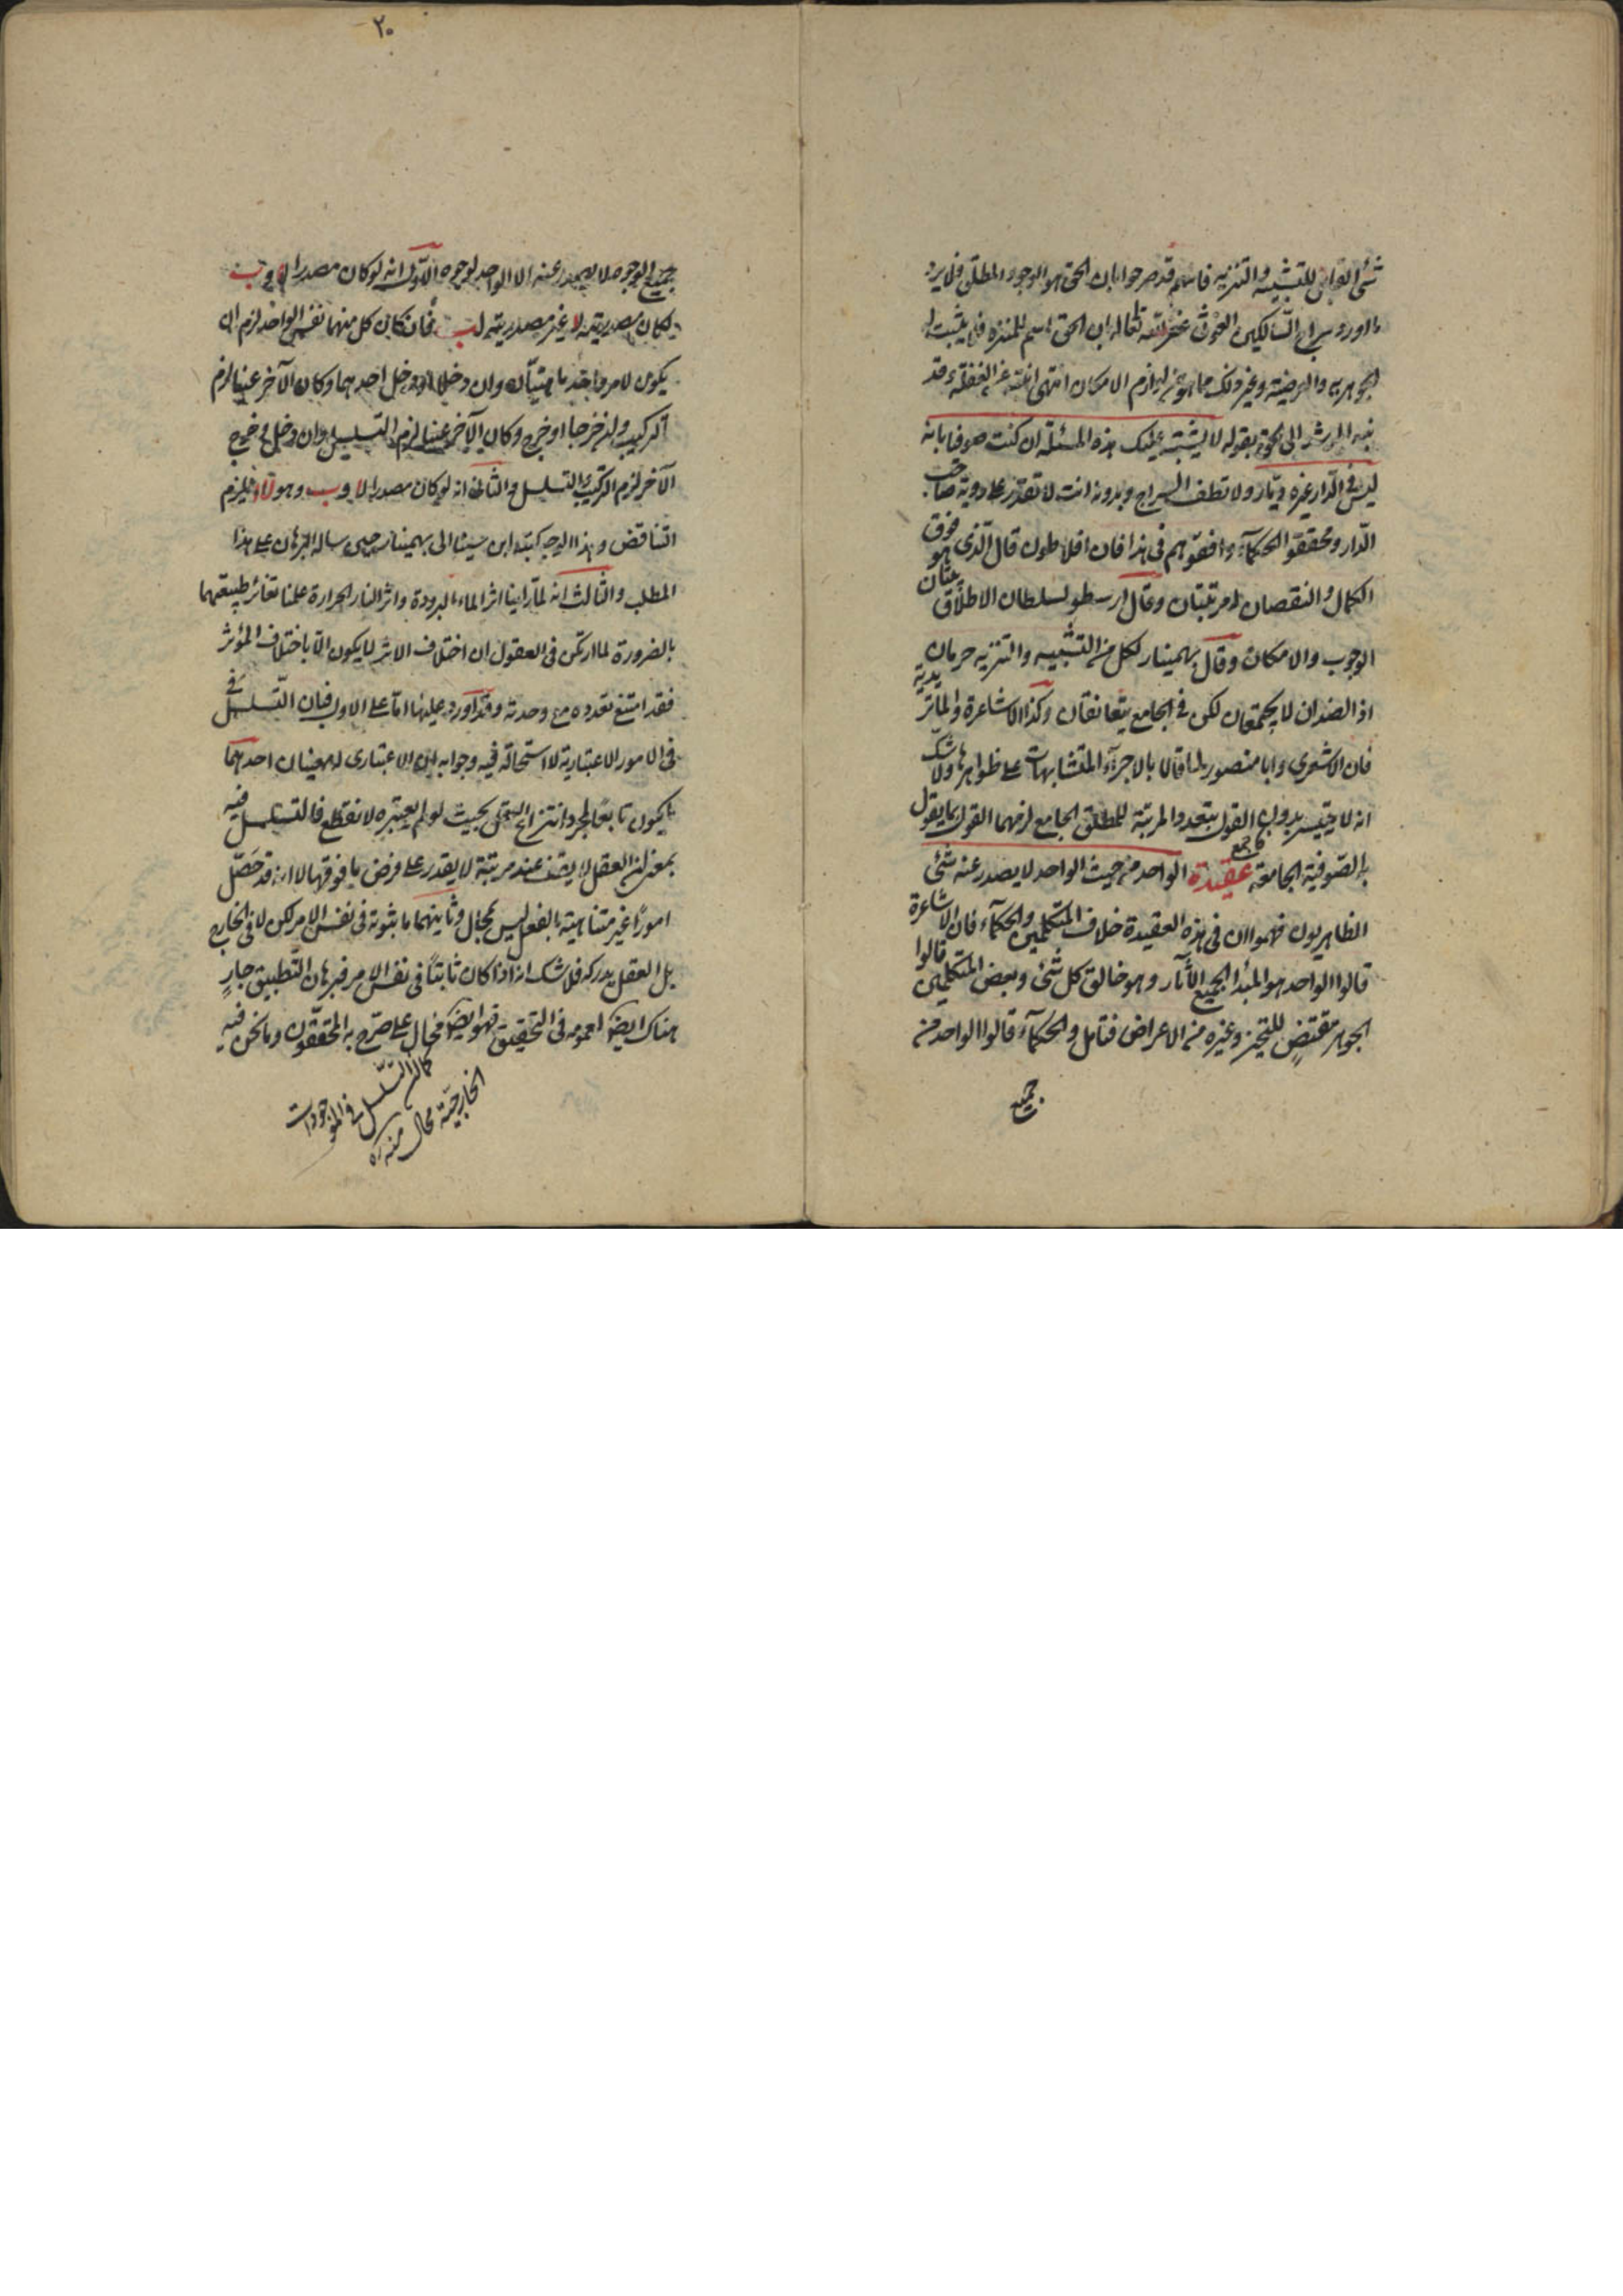 شئ القابل للتشبيه والتنزيه فانهم قد صرحوا بان الحق هو الوجود المطلق فلا يرد
ما اورد سراج السالكين الغوث عفى الله تعالى ان الحق اسم للمنزه فلا يثبت له
الجوهرية والعرضية وغير ذلك مما هو من لوازم الامكان انتهى
نبه المرشد الى بقوله لا يشتبه عليك هذه المسئلة ان كنت صوفيا بانه
ليس في الدار غيره ديار ولا تطف السراج وبدونه انت لا تقدر على رؤية صاحب
الدار ومحققوا الحكماء وافقوهم في هذا فان افلاطون قال الذي هو فوق
الكمال والنقصان له مرتبتان وقال ارسطو لسلطان الاطلاق بيتان
الوجوب والامكان وقال بهمنيار لكل من التشبيه والتنزيه حرمان
اذ الضدان لا يجتمعان لكن في الجامع يتعانقان وكذا الاشاعرة والماتريدية
فان الاشعري وابا منصور لما قالا بالاجراء المتشابهات على ظواهرها ولا شك
انه لا يتيسر بدون القول بتعدد المرتبة للمطلق الجامع لزمهما القول بما يقول
به الصوفية الجامعة عقيدة الواحد من حيث الواحد لا يصدر عنه شئ
الظاهريون فهموا ان في هذه العقيدة خلاف المتكلمين والحكماء فان الاشاعرة
قالوا الواحد هو المبدأ لجميع الآثار وهو خالق كل شئ وبعض المتكلمين قالوا
الجوهر مقتض للتحيز وغيره من الاعراض فتامل والحكماء قالوا الواحد من
جميع
٢٠
جميع الوجوه لا يصدر عنه الا الواحد لوجوه الاول انه لو كان مصدرا لا وب
لكان مصدريته لا غير مصدريته لب فان كان كل منهما نفس الواحد لزم ان
يكون لامر واحد ماهيتان وان دخلا او دخل احدهما وكان الآخر عينا لزم
التركيب وان خرجا او خرج وكان الآخر عينا لزم التسلسل وان دخل وخرج
الآخر لزم التركيب والتسلسل والثاني انه لو كان مصدرا لا وب وهو فيلزم
التناقض وهذا الوجه كتبه ابن سينا الى بهمنيار حين ساله البرهان على هذا
المطلب والثالث انه لما راينا اثر الماء البرودة واثر النار الحرارة علمنا تغائر طبيعتهما
بالضرورة لما ارتكن في العقول ان اختلاف الاثر لا يكون الا باختلاف المؤثر
فقد امتنع تعدده مع وحدته وقد اورد عليها اما على الاول فبان التسلسل في
في الامور الاعتبارية لا استحالة فيه وجوابه ان الاعتباري له معنيان احدهما
ما يكون تابعا لمجرد انتزاع العقل بحيث لو لم يعتبره لانقطع فالتسلسل فيه
بمعنى ان العقل لا يقف عند مرتبة لا يقدر على فرض ما فوقها لا انه قد حصل
امورا غير متناهية بالفعل ليس بمحال وثانيهما ما ثبوته في نفس الامر لكن لا في الخارج
بل العقل يدركه فلا شك انه اذا كان ثابتا في نفس الامر فبرهان التطبيق جار
هناك ايضا لعمومه في التحقيق فهو ايضا محال على ما صرح به المحققون وما نحن فيه
كما ان التسلسل في الموجودات
الخارجية محال منه